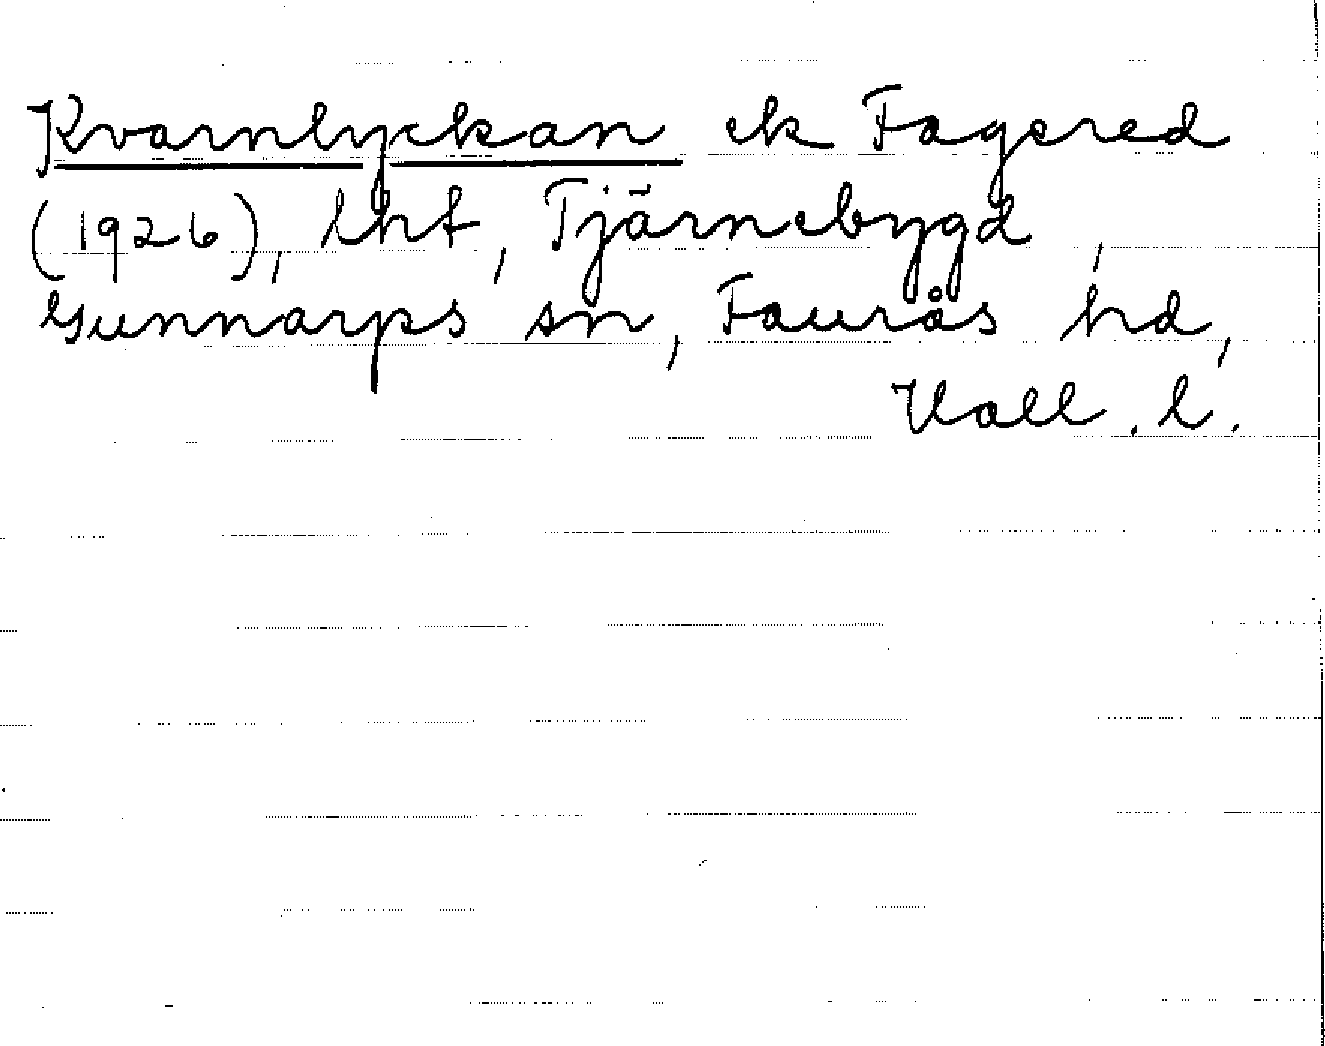 Kvarnlyckan ek Fagered
(1926), lht, Tjärnebygd,
Gunnarps sn, Faurås hd,
Hall. l.